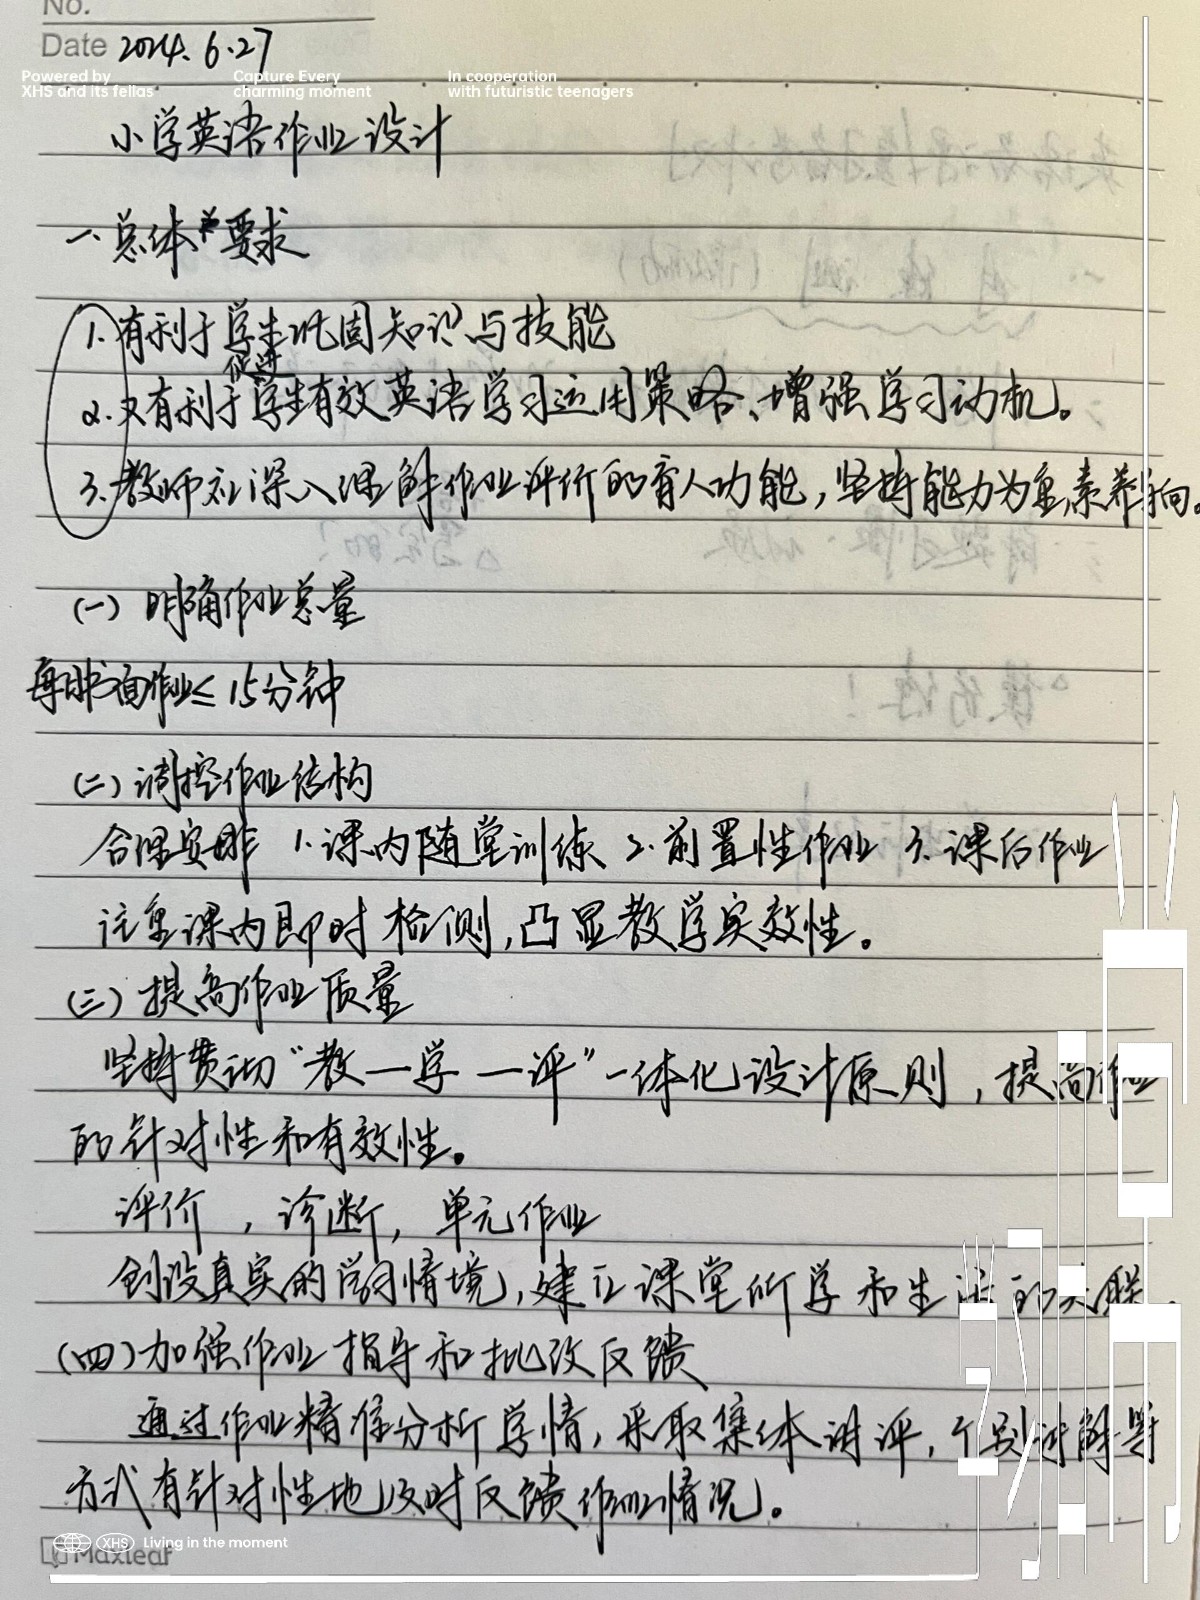 No.
Date 2024.6.27
Powered by
XHS and its fellas
Capture Every
charming moment
In cooperation
with futuristic teenagers
小学英语作业设计
一、总体要求
1.有利于学生巩固知识与技能
促进
2.又有利于学生有效英语学习运用策略、增强学习动机。
3.教师应深入理解作业评价的育人功能,坚持能力为重,素养导向。
(一)明确作业总量
每日书面作业≤15分钟
(二)调控作业结构
合理安排 1.课内随堂训练 2.前置性作业 3.课后作业
注重课内即时检测,凸显教学实效性。
(三)提高作业质量
坚持贯彻“教—学—评”一体化设计原则,提高作业
的针对性和有效性。
评价,诊断,单元作业
创设真实的学习情境,建立课堂所学和生活的关联。
(四)加强作业指导和批改反馈
通过作业精准分析学情,采取集体讲评,个别讲解等
方式有针对性地及时反馈作业情况。
XHS Living in the moment
Maxleaf